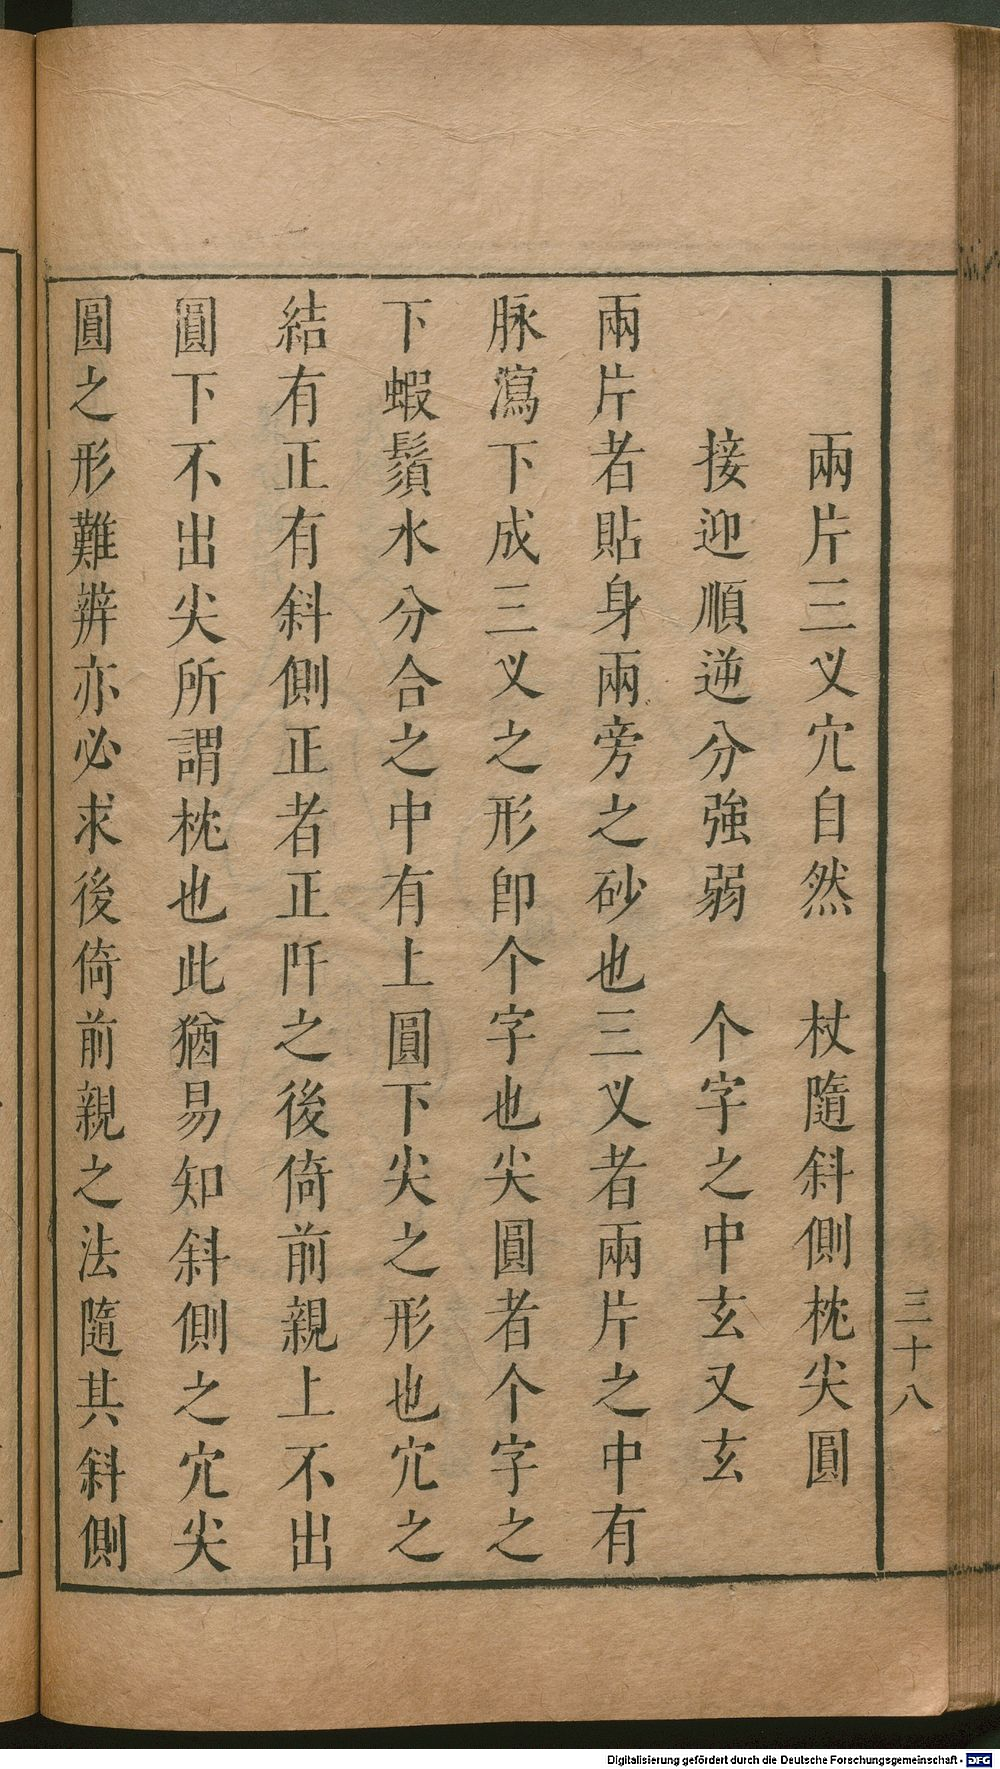 三十八
兩片三义穴自然　杖隨斜側枕尖圓
接迎順逆分強弱　个字之中玄又玄
兩片者貼身兩旁之砂也三义者兩片之中有
脉瀉下成三义之形卽个字也尖圓者个字之
下蝦鬚水分合之中有上圓下尖之形也穴之
結有正有斜側正者正阡之後倚前親上不出
圓下不出尖所謂枕也此猶易知斜側之穴尖
圓之形難辨亦必求後倚前親之法隨其斜側
Digitalisierung gefördert durch die Deutsche Forschungsgemeinschaft - DFG